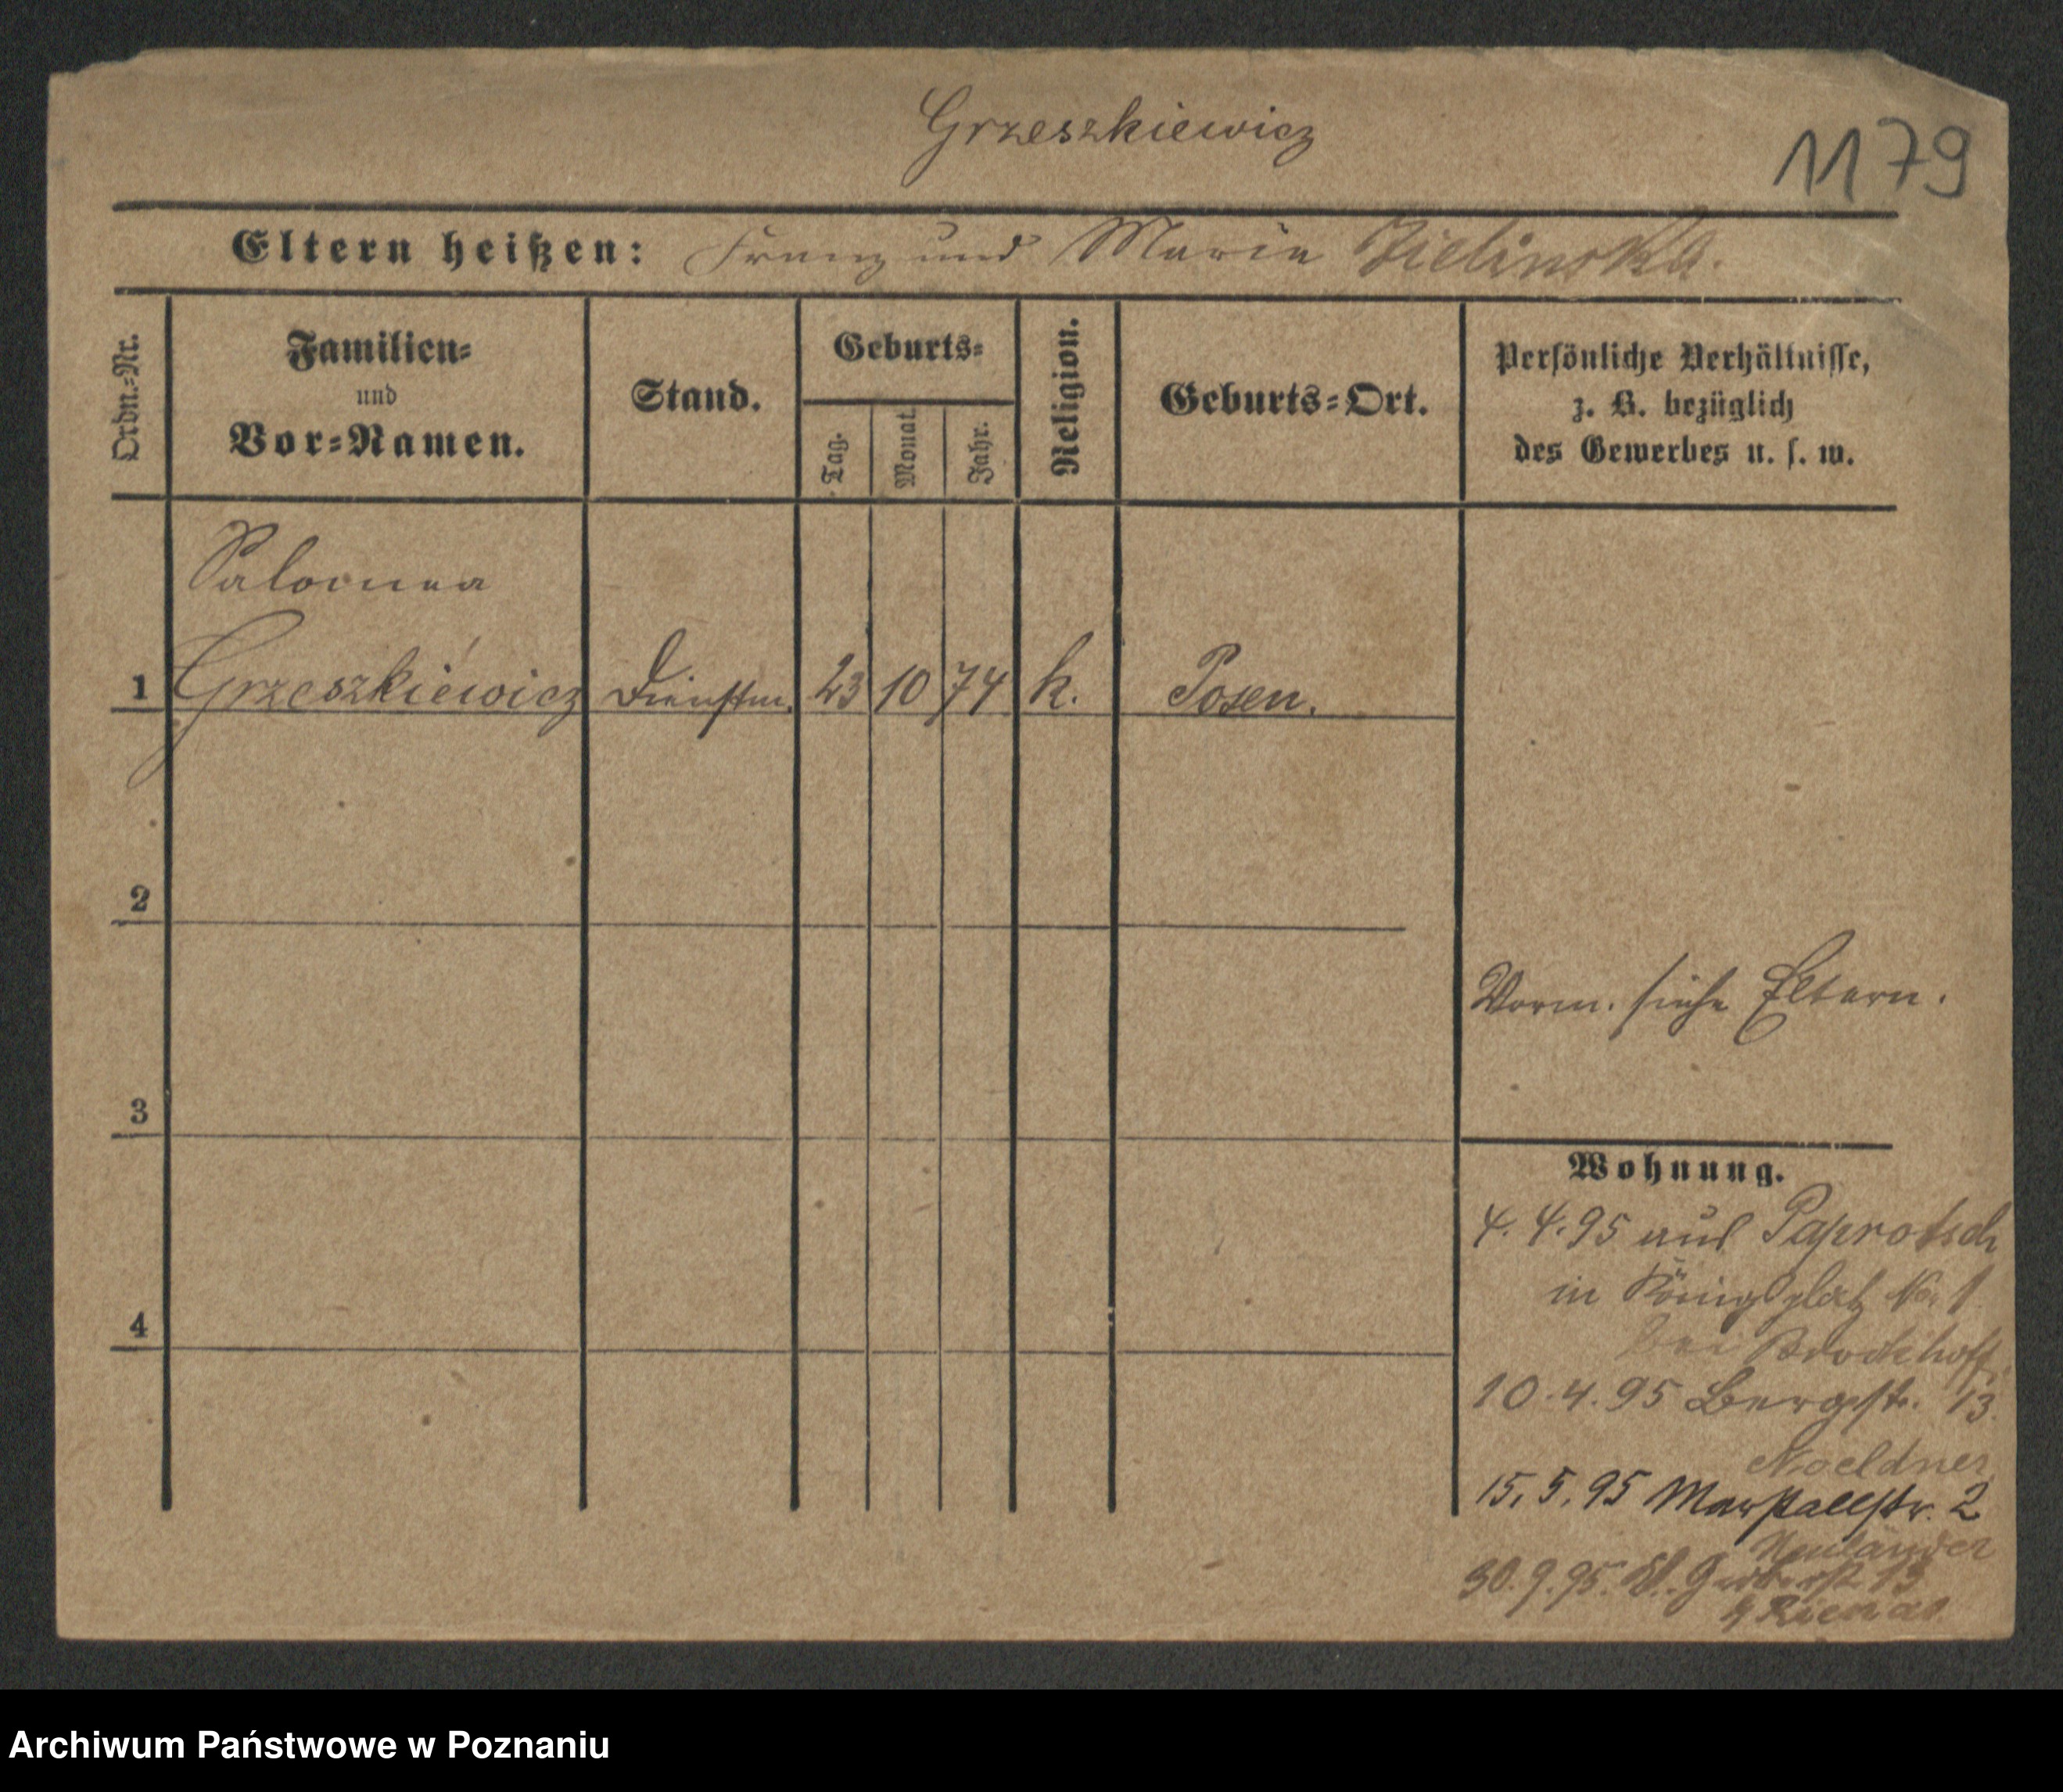 Grzeszkiewicz
1179
Eltern heißen: Franz und Marie Zielinska.
Ordn.-Nr.
Familien- und Vor-Namen.
Stand.
Geburts-
Tag.
Monat
Jahr.
Religion.
Geburts-Ort.
Persönliche Verhältnisse,
z. B. bezüglich
des Gewerbes u. s. w.
Salomea
1 Grzeszkiewicz Dienstm. 23 10 74 k. Posen.
2
Vorm. siehe Eltern.
3
Wohnung.
4. 4. 95 aus Paprotsch
in Königsplatz No. 1
4
bei Brockhoff
10. 4. 95 Bergstr. 13.
Noeldner
15. 5. 95 Marstallstr. 2
Neuländer
30. 9. 95. Gerberstr. 13
Archiwum Państwowe w Poznaniu